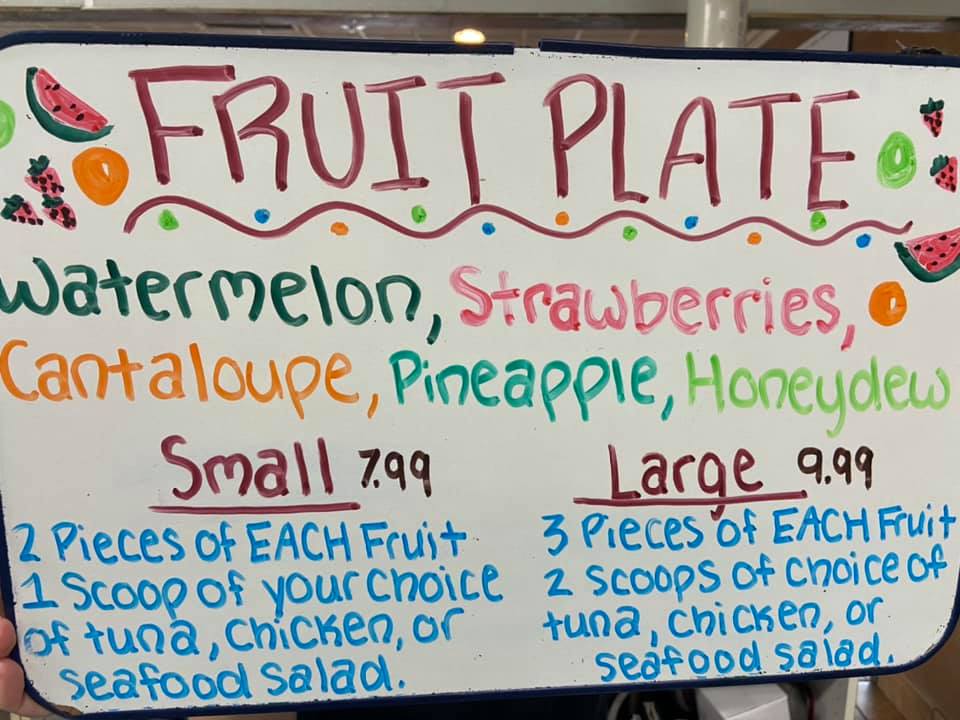 FRUIT PLATE
Watermelon, Strawberries,
Cantaloupe, Pineapple, Honeydew
Small 7.99
2 Pieces of EACH Fruit
1 Scoop of your choice
of tuna, chicken, or
seafood salad.
Large 9.99
3 Pieces of EACH Fruit
2 scoops of choice of
tuna, chicken, or
seafood salad.